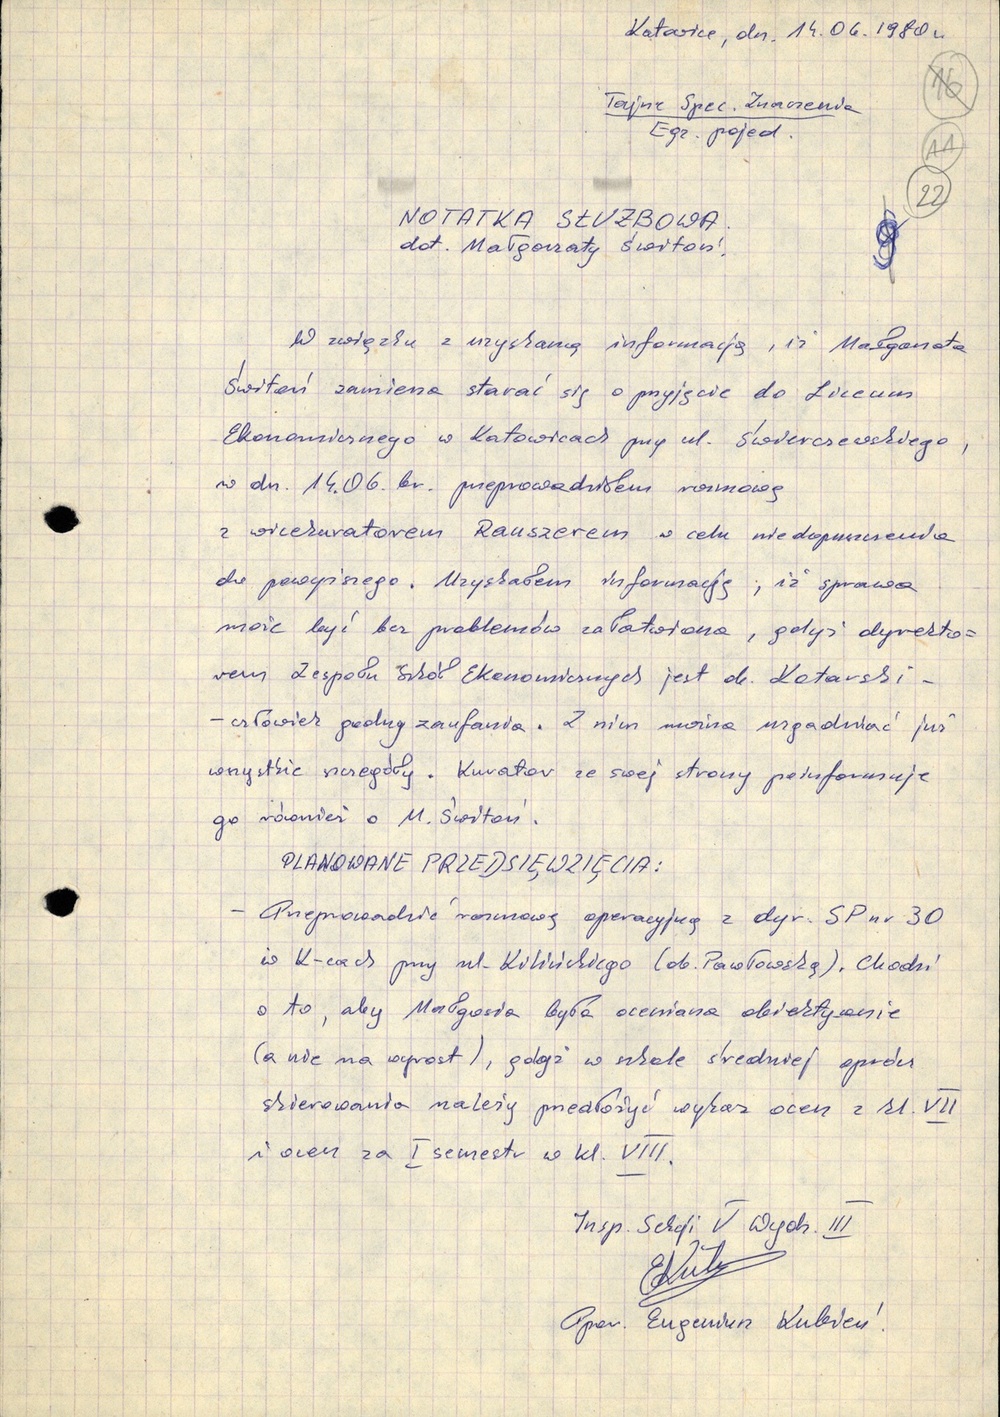 Katowice, dn. 14.06.1980 r.
16
Tajne Spec. Znaczenia
Egz. pojed.
11
22
NOTATKA SŁUŻBOWA
dot. Małgorzaty Świtoń.
W związku z uzyskaną informacją, iż Małgorzata
Świtoń zamierza starać się o przyjęcie do Liceum
Ekonomicznego w Katowicach przy ul. Świerczewskiego,
w dn. 14.06. br. przeprowadziłem rozmowę
z wicekuratorem Rauszerem w celu niedopuszczenia
do powyższego. Uzyskałem informację, iż sprawa
może być bez problemów załatwiona, gdyż dyrekto=
rem Zespołu Szkół Ekonomicznych jest ob. Kotarski -
- człowiek godny zaufania. Z nim można uzgadniać już
wszystkie szczegóły. Kurator ze swej strony poinformuje
go również o M. Świtoń.
PLANOWANE PRZEDSIĘWZIĘCIA:
- Przeprowadzić rozmowę operacyjną z dyr. SP nr 30
w K-cach przy ul. Kilińskiego (ob. Pawłowską). Chodzi
o to, aby Małgosia była oceniana obiektywnie
(a nie na wyrost), gdyż w szkole średniej oprócz
skierowania należy przedłożyć wykaz ocen z kl. VII
i ocen za I semestr w kl. VIII.
Insp. Sekcji V Wydz. III
Ppor. Eugeniusz Kubień.